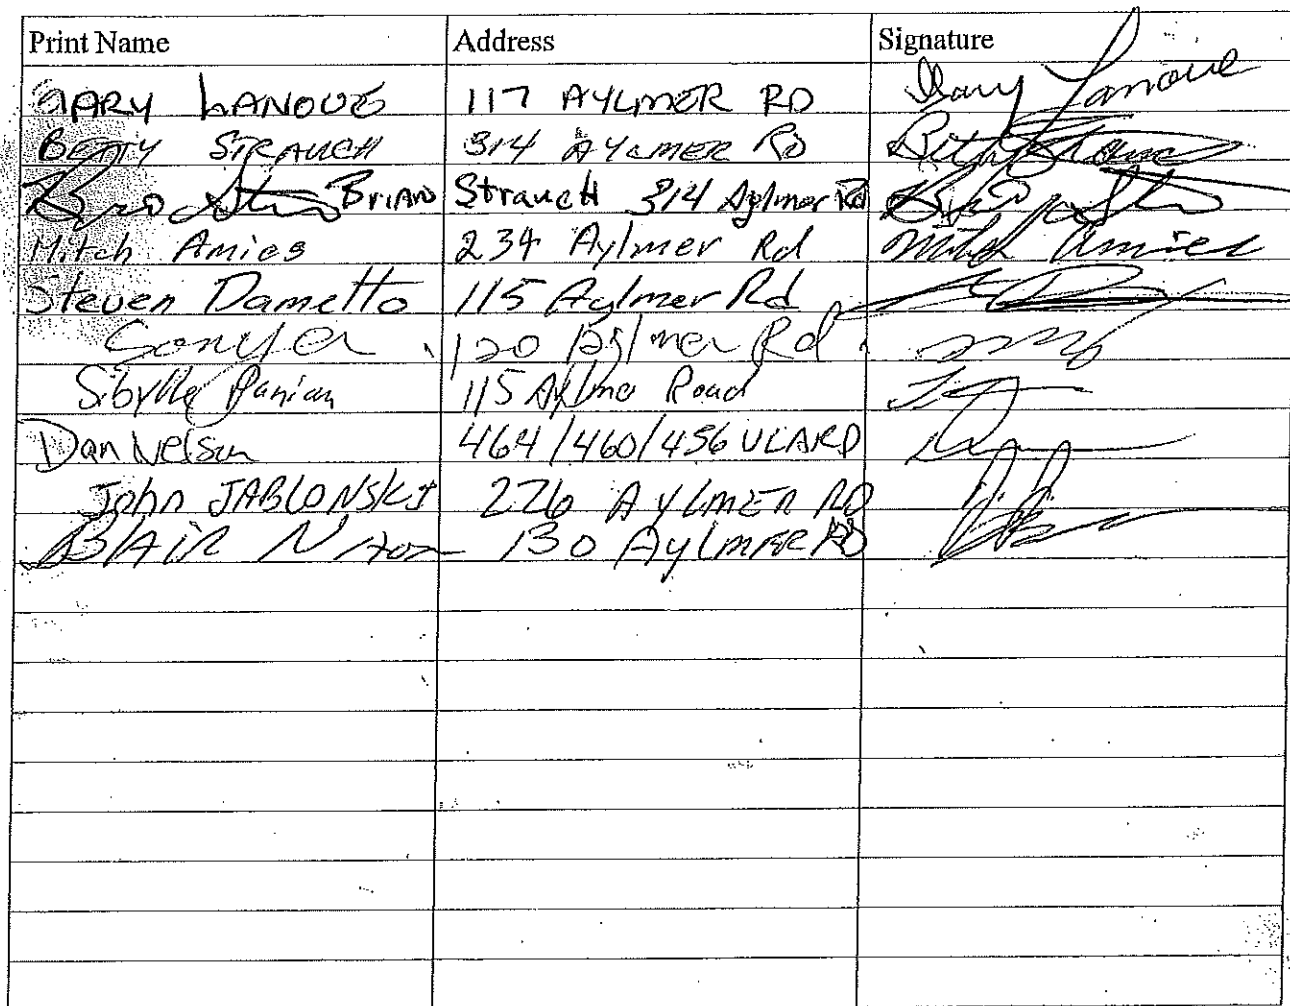 Print Name Address Signature
GARY LANOUE 117 AYLMER RD Gary Lanoue
BETTY STRAUCH 314 AYLMER RD
BRIAN Strauch 314 Aylmer Rd
Mitch Amies 234 Aylmer Rd Mitch Amies
Steven Dametto 115 Aylmer Rd
120 Aylmer Rd
Sibylle 115 Aylmer Road
Dan Nelson 464/460/456
John JABLONSKI 226 AYLMER RD
BLAIR Nixon 130 AYLMER RD